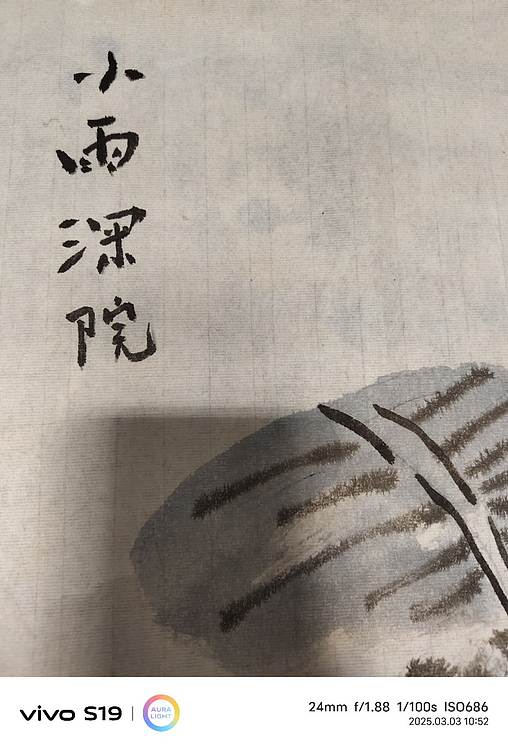 小雨深院
vivo S19
AURA LIGHT
24mm f/1.88 1/100s ISO686
2025.03.03 10:52